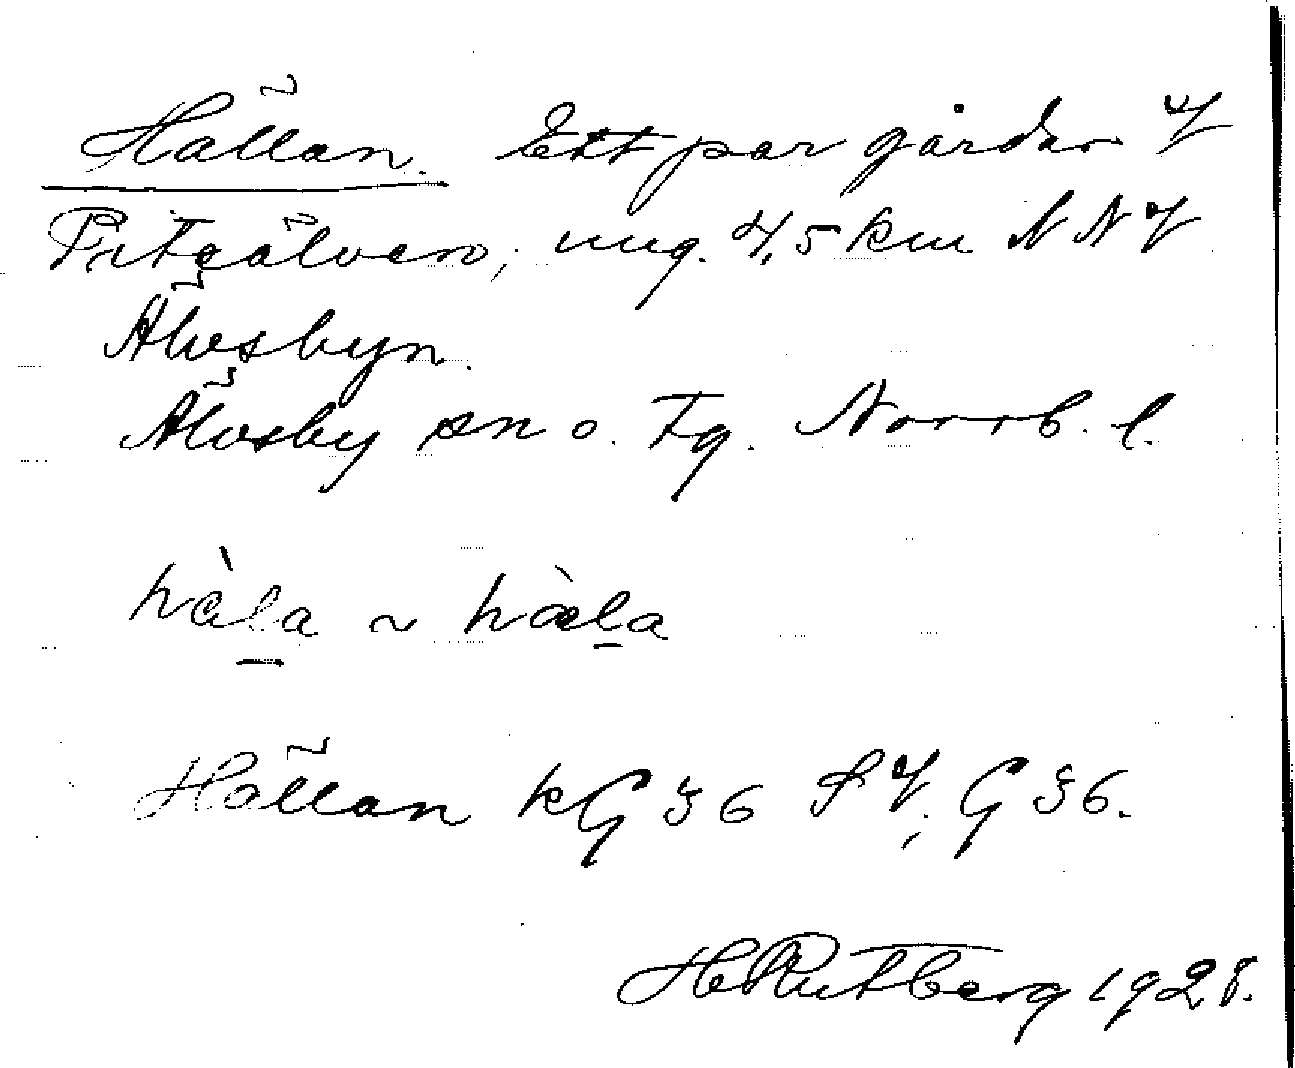 Hällan. Ett par gårdar V
Piteälven, ung. 4,5 km NNV
Älvsbyn.
Älvsby sn o. tg. Norrb. l.
hàla ~ hàla
Hällan kG 36 SV, G 36.
H Rutberg 1928.